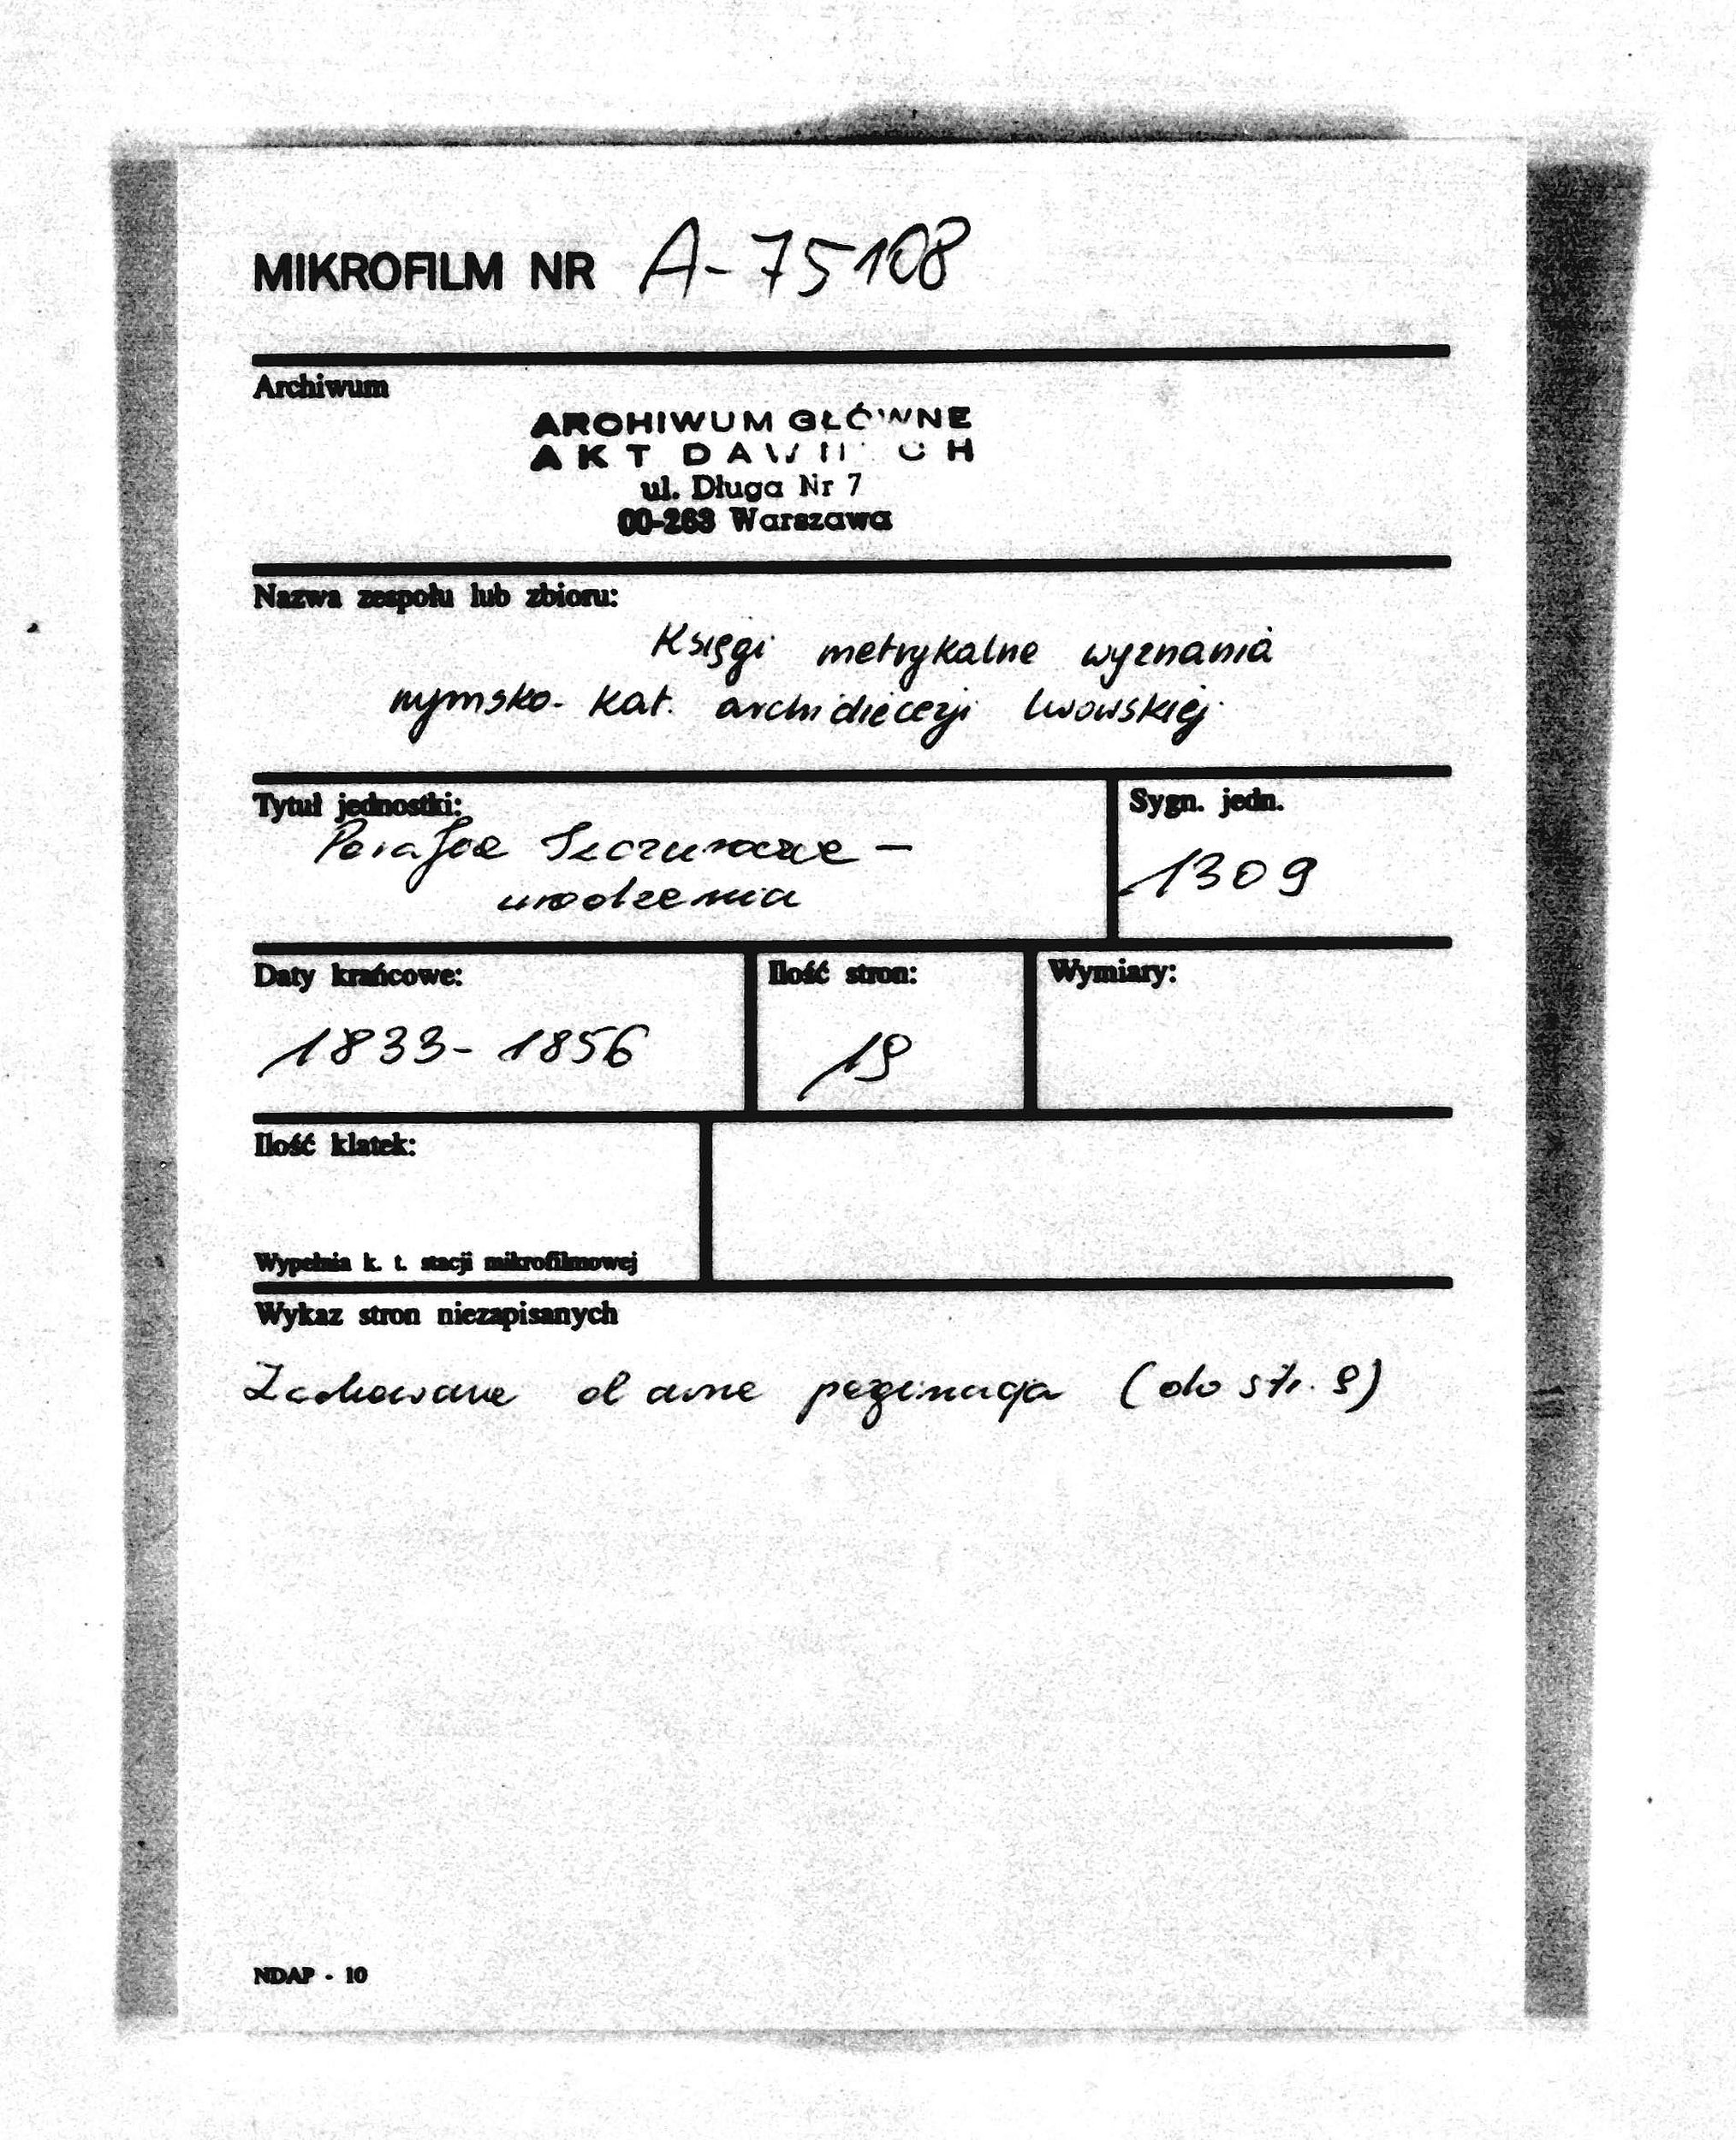 MIKROFILM NR A-75108
Archiwum
ARCHIWUM GŁÓWNE
AKT DAWNYCH
ul. Długa Nr 7
00-263 Warszawa
Nazwa zespołu lub zbioru:
Księgi metrykalne wyznania
rzymsko-kat. archidiecezji lwowskiej
Tytuł jednostki:
Parafia Szczurowice —
urodzenia
Sygn. jedn.
1309
Daty krańcowe:
1833-1856
Ilość stron:
19
Wymiary:
Ilość klatek:
Wypełnia k. t. stacji mikrofilmowej
Wykaz stron niezapisanych
Zachowane dawne paginacja (do str. 9)
NDAP - 10